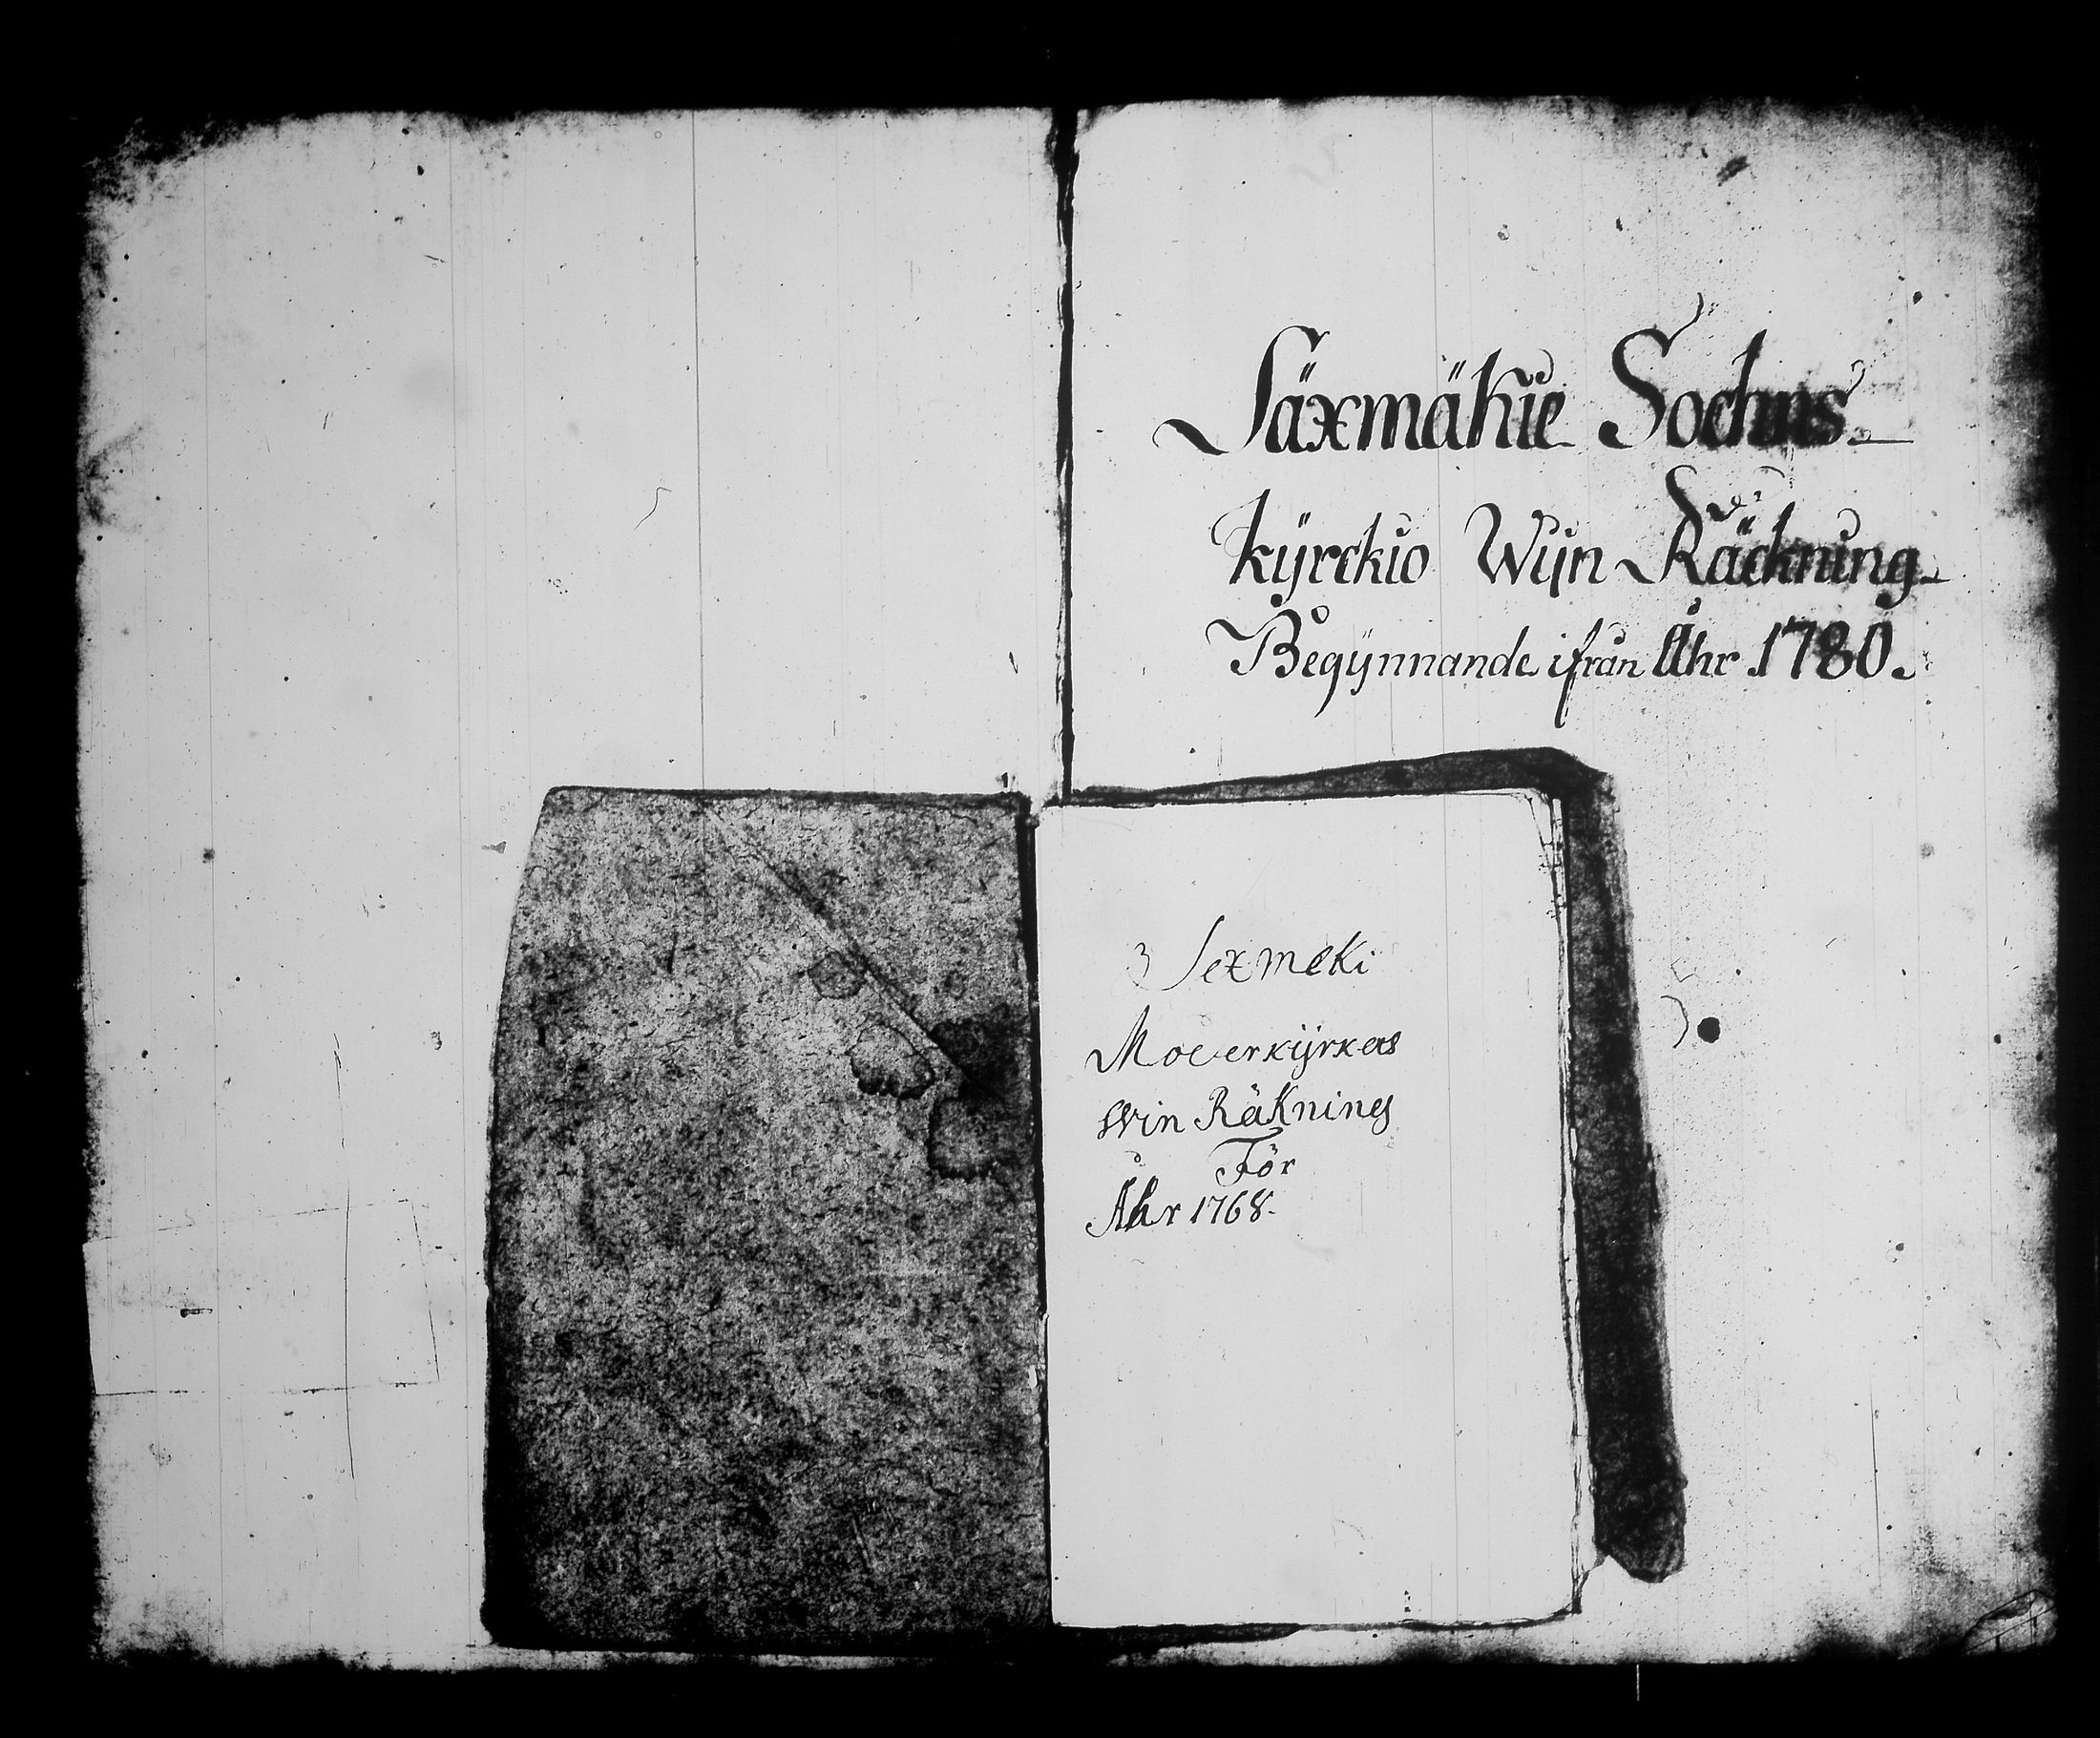 Säxmäkie Sochns
kÿrckio Wijn Räckning
Begÿnnande ifrån Åhr 1780.
3 Sexmeki
Moderkÿrkas
Win Räkning
För
Åhr 1768.